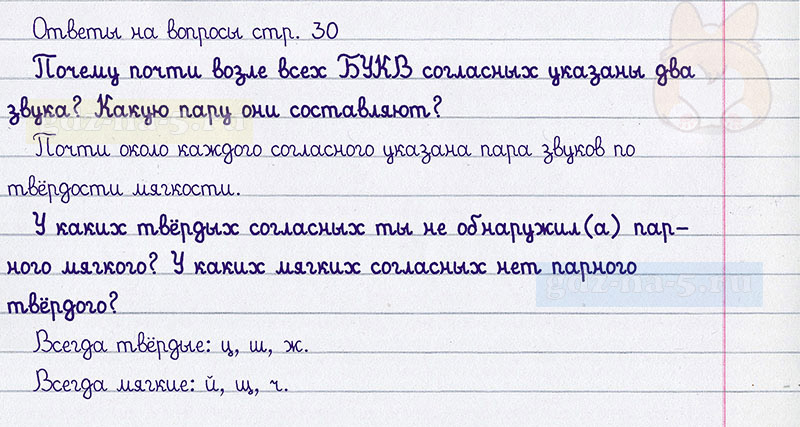 Ответы на вопросы стр. 30
Почему почти возле всех БУКВ согласных указаны два
звука? Какую пару они составляют?
gdz-na-5.ru
Почти около каждого согласного указана пара звуков по
твёрдости мягкости.
У каких твёрдых согласных ты не обнаружил(а) пар-
ного мягкого? У каких мягких согласных нет парного
gdz-na-5.ru
твёрдого?
Всегда твёрдые: ц, ш, ж.
Всегда мягкие: й, щ, ч.